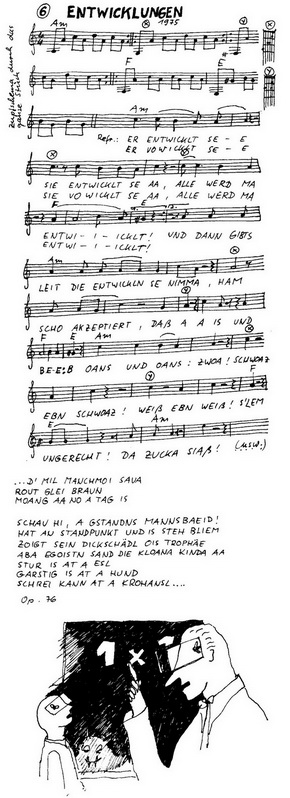 6 ENTWICKLUNGEN
1975
Am
F
E
Am
Refr.: ER ENTWICKLT SE - E
ER VOWICKLT SE - E
SIE ENTWICKLT SE AA, ALLE WERD MA
SIE VOWICKLT SE AA, ALLE WERD MA
F E
ENTWI - I - ICKLT! UND DANN GIBTS
ENTWI - I - ICKLT!
Am
LEIT DIE ENTWICKLN SE NIMMA, HAM
SCHO AKZEPTIERT, DAß A A IS UND
F E Am
BE-E=B OANS UND OANS: ZWOA! SCHWOAZ
F
EBN SCHWOAZ! WEIß EBN WEIß! S'LEM
E Am
UNGERECHT! DA ZUCKA SIAß! (usw.)
...D' MIL MANCHMOI SAUA
ROUT GLEI BRAUN
MOANG AA NO A TAG IS
SCHAU HI, A GSTANDNS MANNSBAEID!
HAT AN STANDPUNKT UND IS STEH BLIEM
ZOIGT SEIN DICKSCHÄDL OIS TROPHÄE
ABA EGOISTN SAND DIE KLOANA KINDA AA
STUR IS AT A ESL
GARSTIG IS AT A HUND
SCHREI KANN AT A KROHANSL....
Op. 76
1 x 1